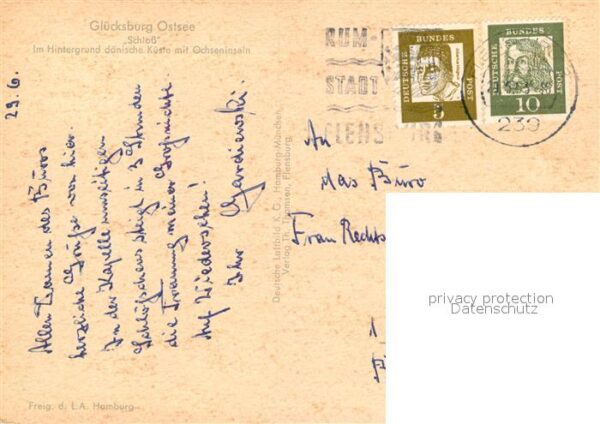 Glücksburg Ostsee
„Schloß"
Im Hintergrund dänische Küste mit Ochseninseln
29. 6.
Allen Damen des Büros
herzliche Grüße von hier.
In der Kapelle umseitigen
Schlosses steigt in 3 Stunden
die Trauung meiner
Auf Wiedersehen!
Ihr
Freig. d. L.A. Hamburg
Deutsche Luftbild K.G., Hamburg-München
Verlag Th. Thomsen, Flensburg
RUM-
STADT
FLENSBURG
DEUTSCHE BUNDES POST
5
DEUTSCHE BUNDES POST
10
239
An
das Büro
Frau Rechts
privacy protection
Datenschutz